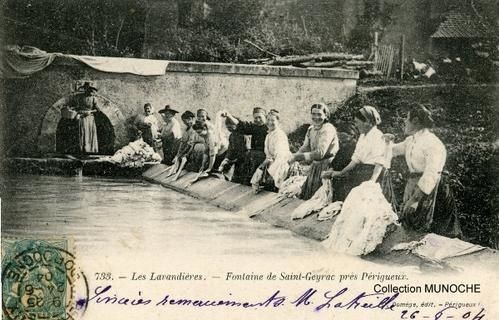 733. - Les Lavandières. - Fontaine de Saint-Geyrac près Périgueux.
Collection MUNOCHE
Domège, édit. - Périgueux
Sincères remerciements, M.
26-8-04